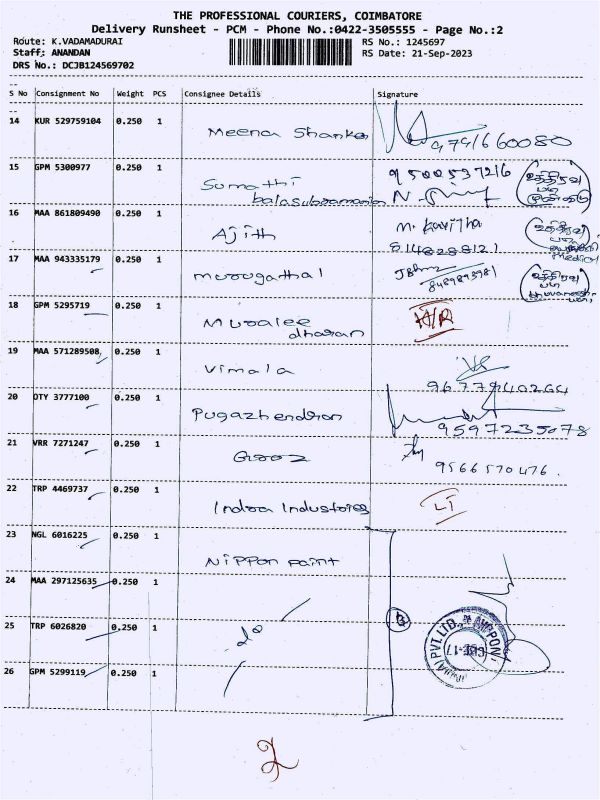 THE PROFESSIONAL COURIERS, COIMBATORE
Delivery Runsheet - PCM - Phone No.:0422-3505555 - Page No.:2
Route: K.VADAMADURAI RS No.: 1245697
Staff: ANANDAN RS Date: 21-Sep-2023
DRS No.: DCJB124569702
S No Consignment No Weight PCS Consignee Details Signature
14 KUR 529759104 0.250 1
Meena Shanker
15 GPM 5300977 0.250 1 9500597216
Sumathi
balasubramanian
16 MAA 861809490 0.250 1 M. Kavitha
Ajith 8148288121
17 MAA 943335179 0.250 1
Murugathal
18 GPM 5295719 0.250 1
Muralee
dharan
19 MAA 571289508 0.250 1
Vimala
20 OTY 3777100 0.250 1
Pugazhendran 9597235078
21 VRR 7271247 0.250 1
9566570476.
22 TRP 4469737 0.250 1
Indra Industries
23 NGL 6016225 0.250 1
Nippon Paint
24 MAA 297125635 0.250 1
25 TRP 6026820 0.250 1
do
26 GPM 5299119 0.250 1
2